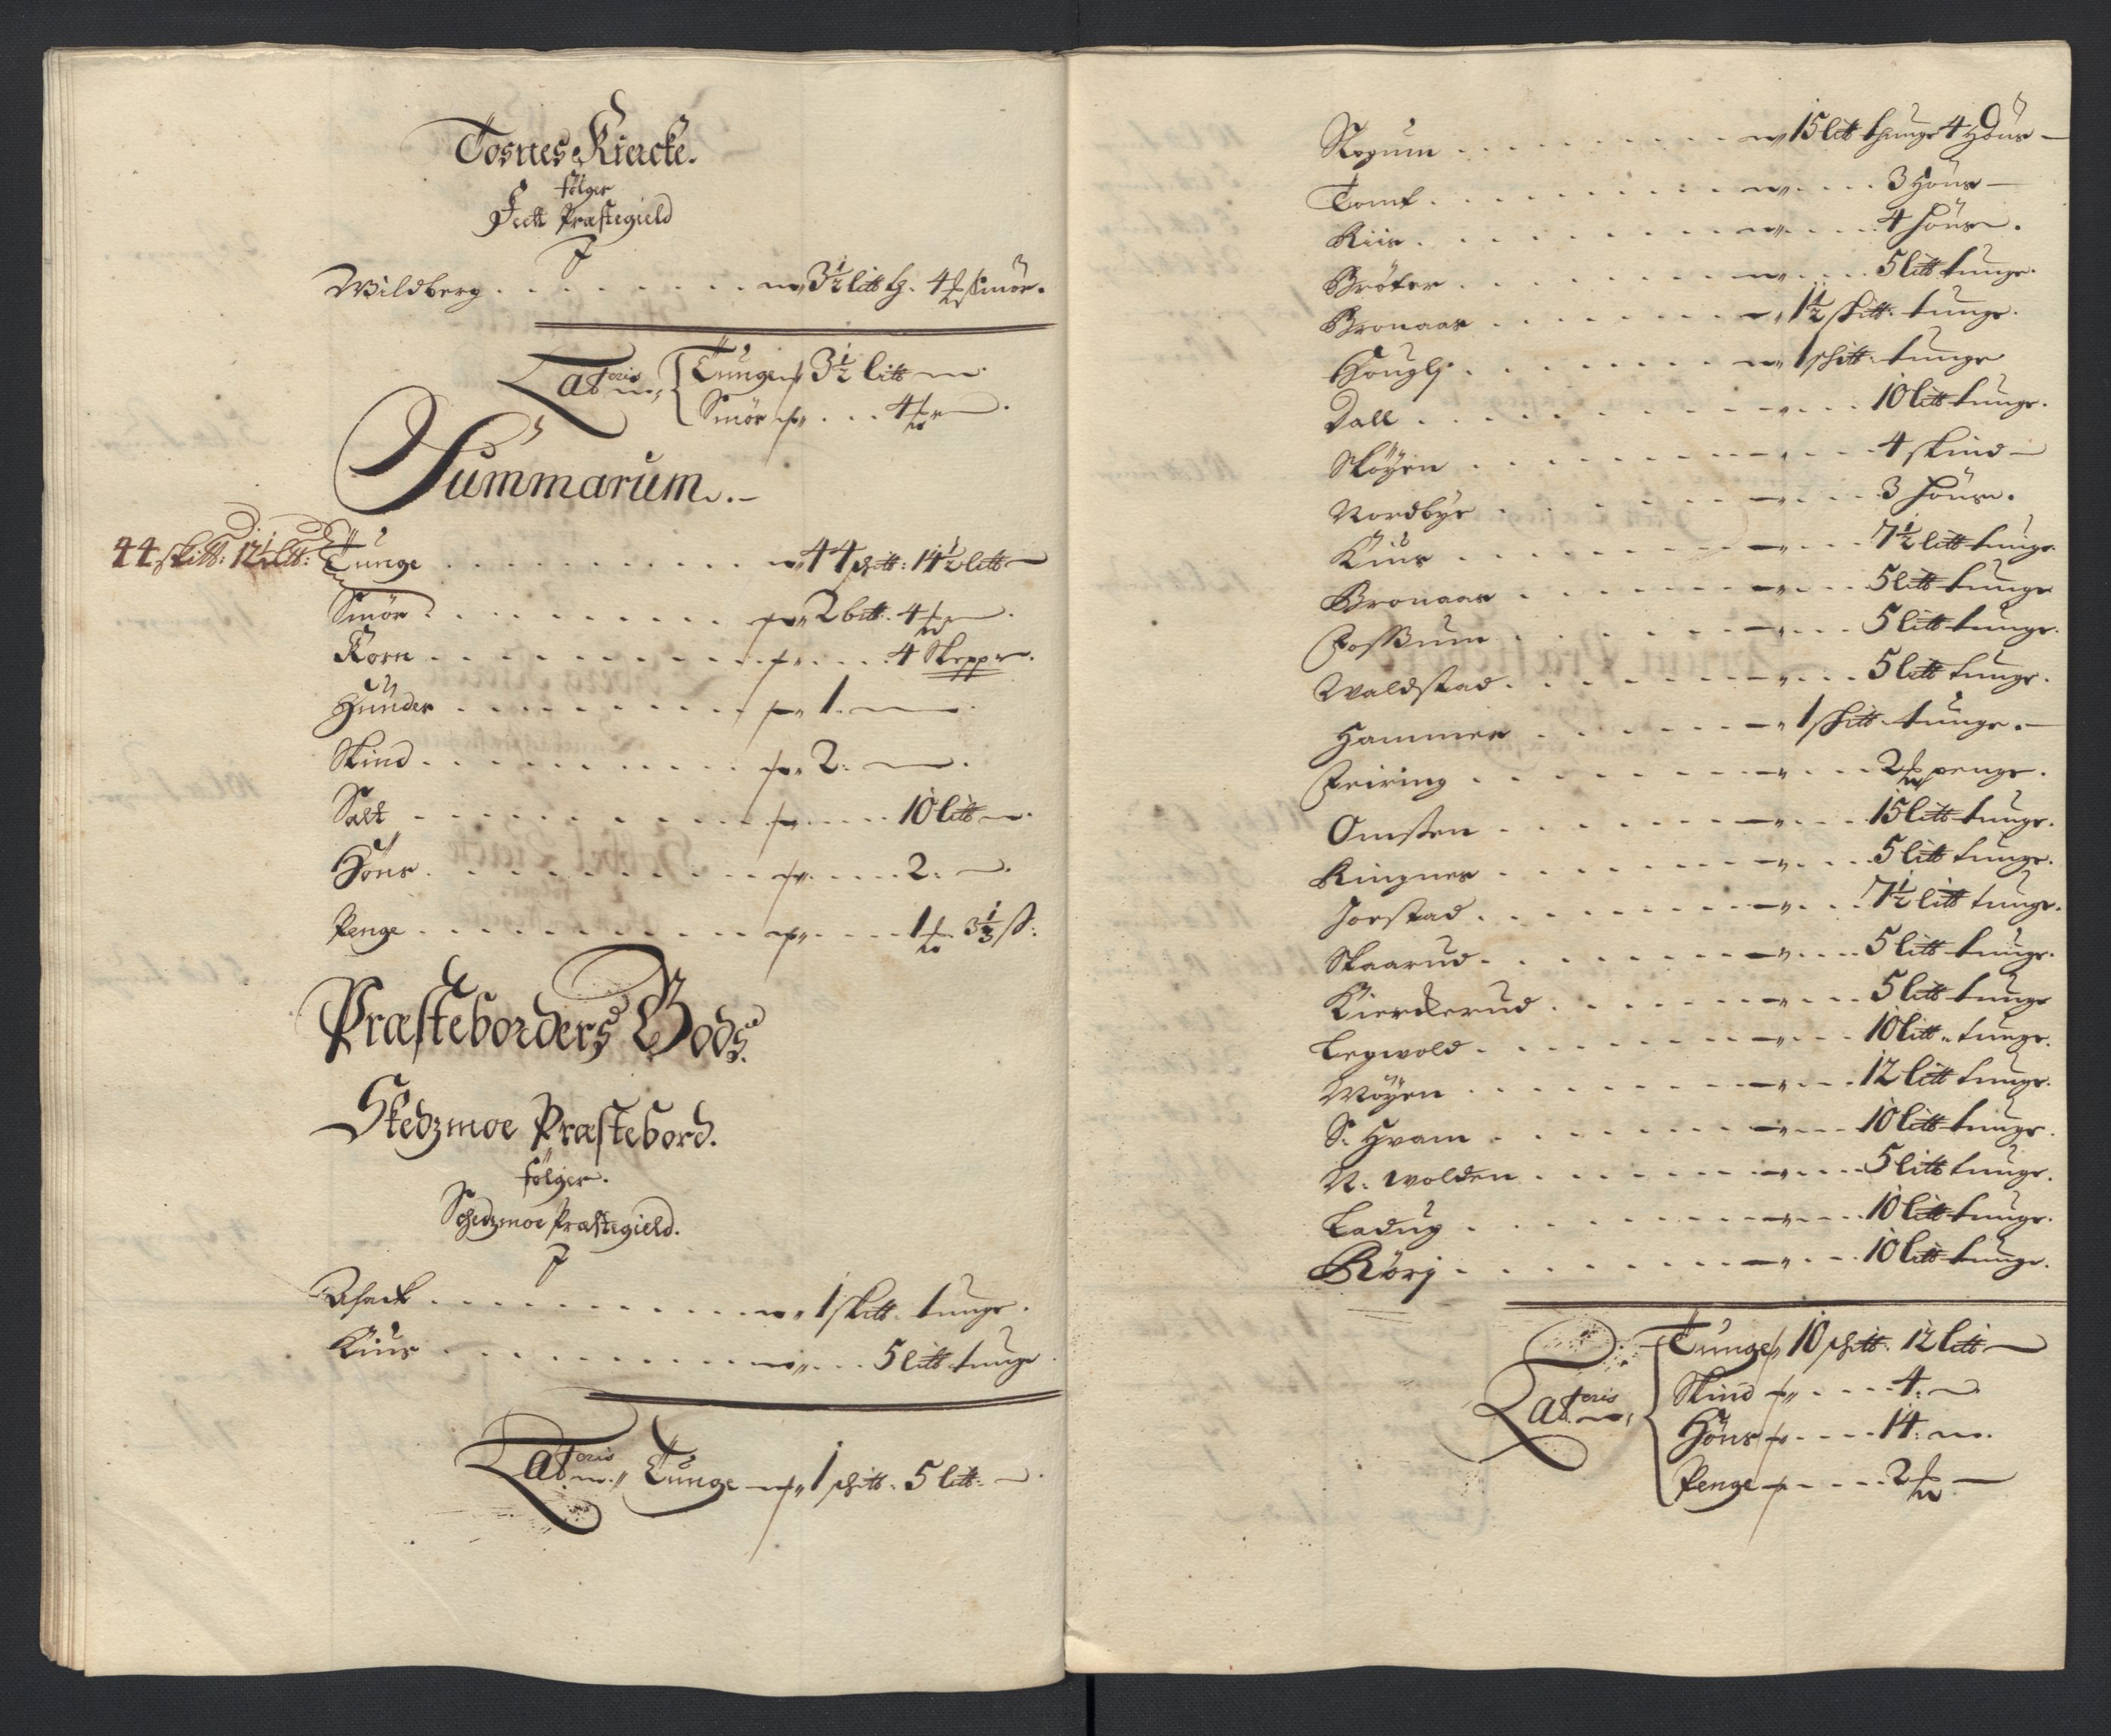 Tosnes Kiercke.
følger
Feett Præstegield
Wildberg . . . . . . . . 3½ litt h. 4 Smör.
Lateris Tunge 3½ litt
Smör . . . 4
Summarum.
44 skitt: 12½ litt:
Tunge . . . . . . . . . . 44 schtt: 14½ litt
Smör . . . . . . . . . . 2 btt: 4
Korn . . . . . . . . . . 4 Skepper.
Hünder . . . . . . . . . 1.
Skind . . . . . . . . . . 2.
Salt . . . . . . . . . . 10 litt
Höns . . . . . . . . . . 2.
Penge . . . . . . . . . . 1 3⅓ ß:
Præsteborders Gods.
Skedzmoe Præstebord.
følger.
Schedzmoe Præstegield.
Asack . . . . . . . . . . 1 skitt. tunge.
Kius . . . . . . . . . . 5 litt tunge
Lateris Tunge 1 schtt. 5 litt.
Skysum . . . . . . . . 15 litt thunge 4 Höns
Tomt . . . . . . . . 3 Höns
Riis . . . . . . . . 4 höns.
Bröter . . . . . . . . 5 litt tunge.
Bronaas . . . . . . . . 1½ skitt. tunge.
Hougly . . . . . . . . 1 skitt. tunge
Dall . . . . . . . . 10 litt tunge.
Skøyen . . . . . . . . 4 skind
Nordbye . . . . . . . . 3 höns.
Kius . . . . . . . . 7½ litt tunge.
Bronaas . . . . . . . . 5 litt tunge
Fossum . . . . . . . . 5 litt tunge.
Waldstad . . . . . . . . 5 litt tunge.
Hammer . . . . . . . . 1 skitt. tunge.
Feiring . . . . . . . . 2 penge.
Omsten . . . . . . . . 15 litt tunge.
Ringnes . . . . . . . . 5 litt tunge.
Jorstad . . . . . . . . 7½ litt tunge.
Skaarud . . . . . . . . 5 litt tunge.
Kierkerud . . . . . . . . 5 litt tunge
Legwold . . . . . . . . 10 litt tunge.
Wøyen . . . . . . . . 12 litt tunge.
S. Hvam . . . . . . . . 10 litt tunge.
N. wolden . . . . . . . . 5 litt tunge.
Ladug . . . . . . . . 10 litt tunge.
Rörj . . . . . . . . 10 litt tunge.
Lateris Tunge 10 schtt. 12 litt
Skind . . . . 4.
Höns . . . . 14.
Penge . . . . 2